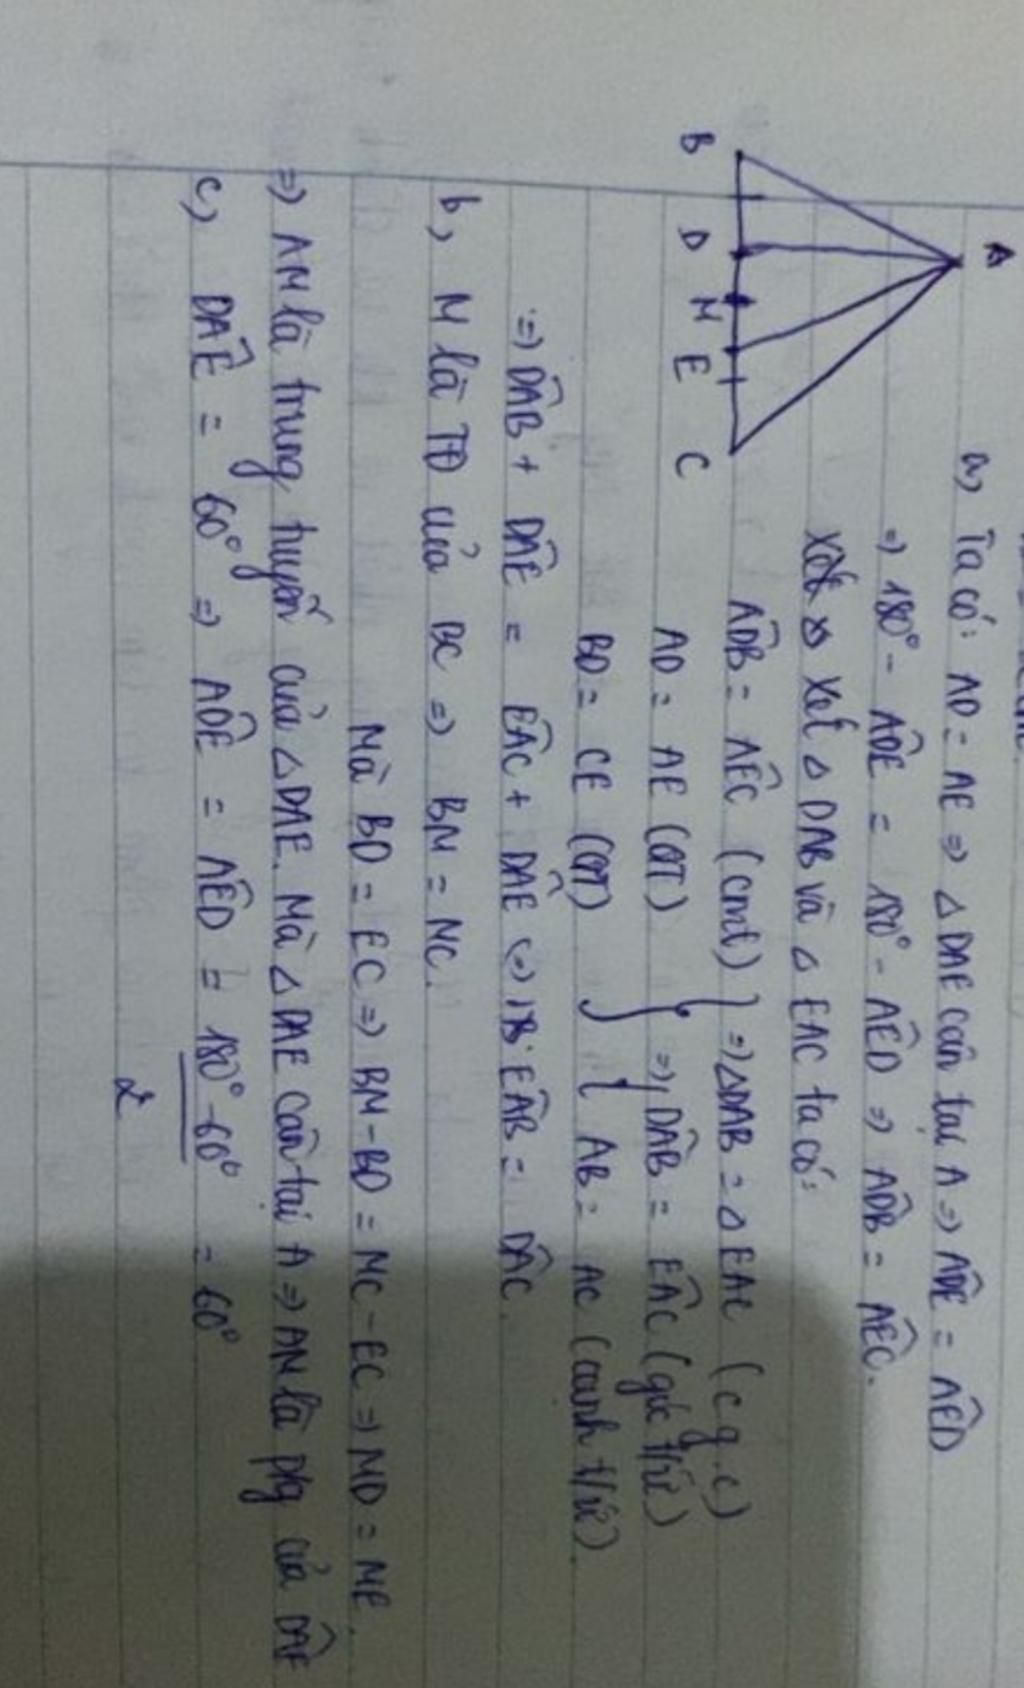 A
B D M E C
a, Ta có: AD = AE => △DAE cân tại A => ADÊ = AÊD
=> 180° - ADÊ = 180° - AÊD => ADB = AÊC.
Xét △ DAB và △ EAC ta có:
ADB = AÊC (cmt) } => △DAB = △EAC (c.g.c)
AD = AE (GT) } => { DAB = EAC (góc t/ứ)
BD = CE (GT) } { AB = AC (cạnh t/ứ).
=> DAB + DAE = EAC + DAE <=> EAB = DAC.
b, M là TĐ của BC => BM = MC.
Mà BD = EC => BM - BD = MC - EC => MD = ME.
=> AM là trung tuyến của △DAE. Mà △DAE cân tại A => AM là p/g của DAE
c, DAE = 60° => ADE = AED = 180° - 60° = 60°
2